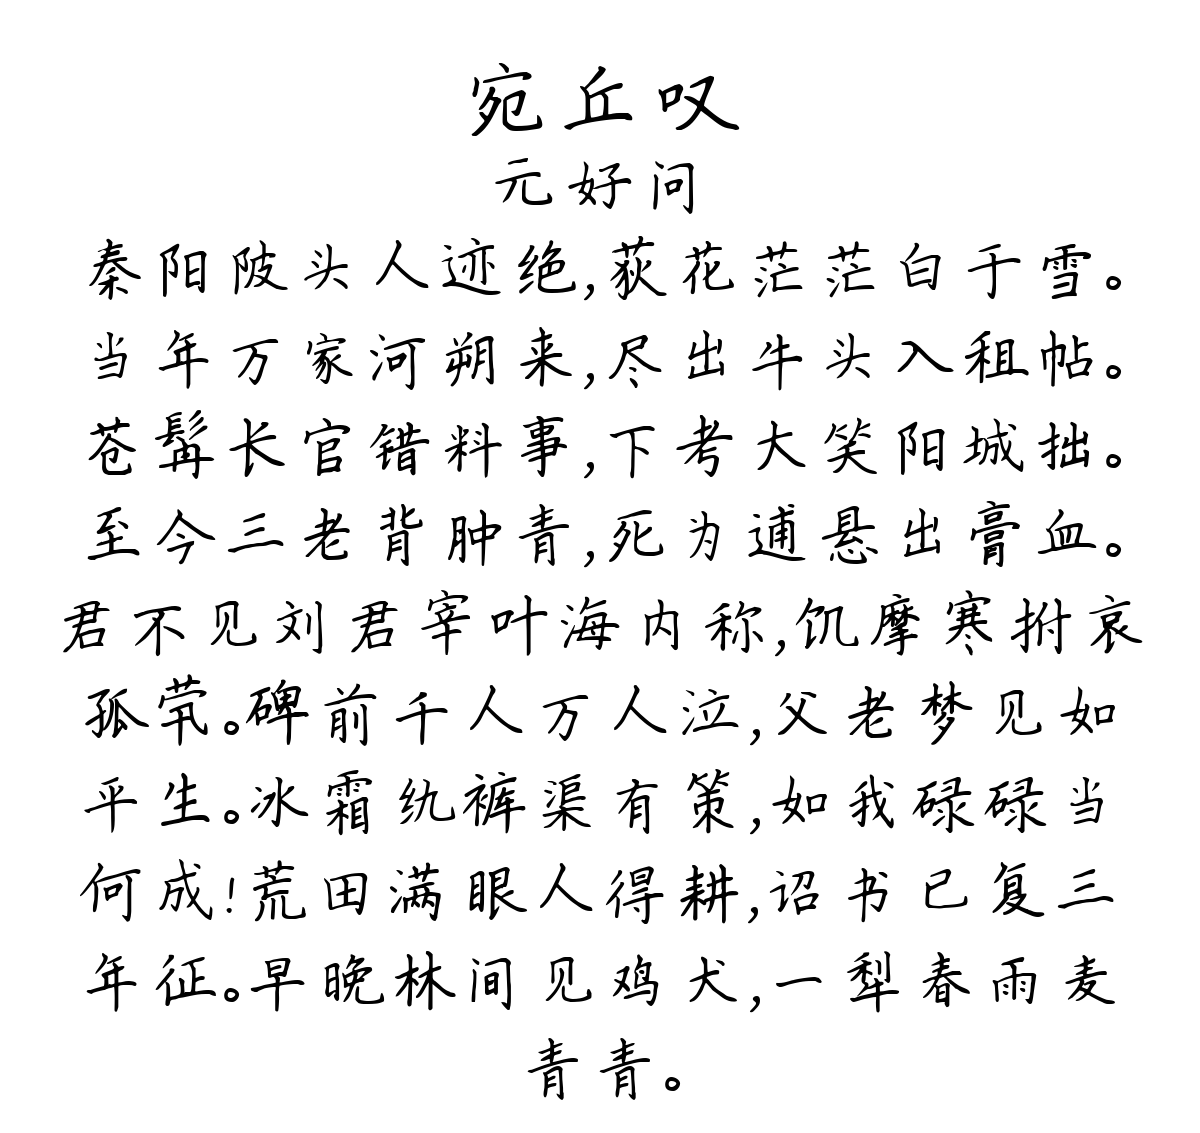 宛丘叹
元好问
秦阳陂头人迹绝,荻花茫茫白于雪。
当年万家河朔来,尽出牛头入租帖。
苍髯长官错料事,下考大笑阳城拙。
至今三老背肿青,死为逋悬出膏血。
君不见刘君宰叶海内称,饥摩寒拊哀
孤茕。碑前千人万人泣,父老梦见如
平生。冰霜纨裤渠有策,如我碌碌当
何成!荒田满眼人得耕,诏书已复三
年征。早晚林间见鸡犬,一犁春雨麦
青青。